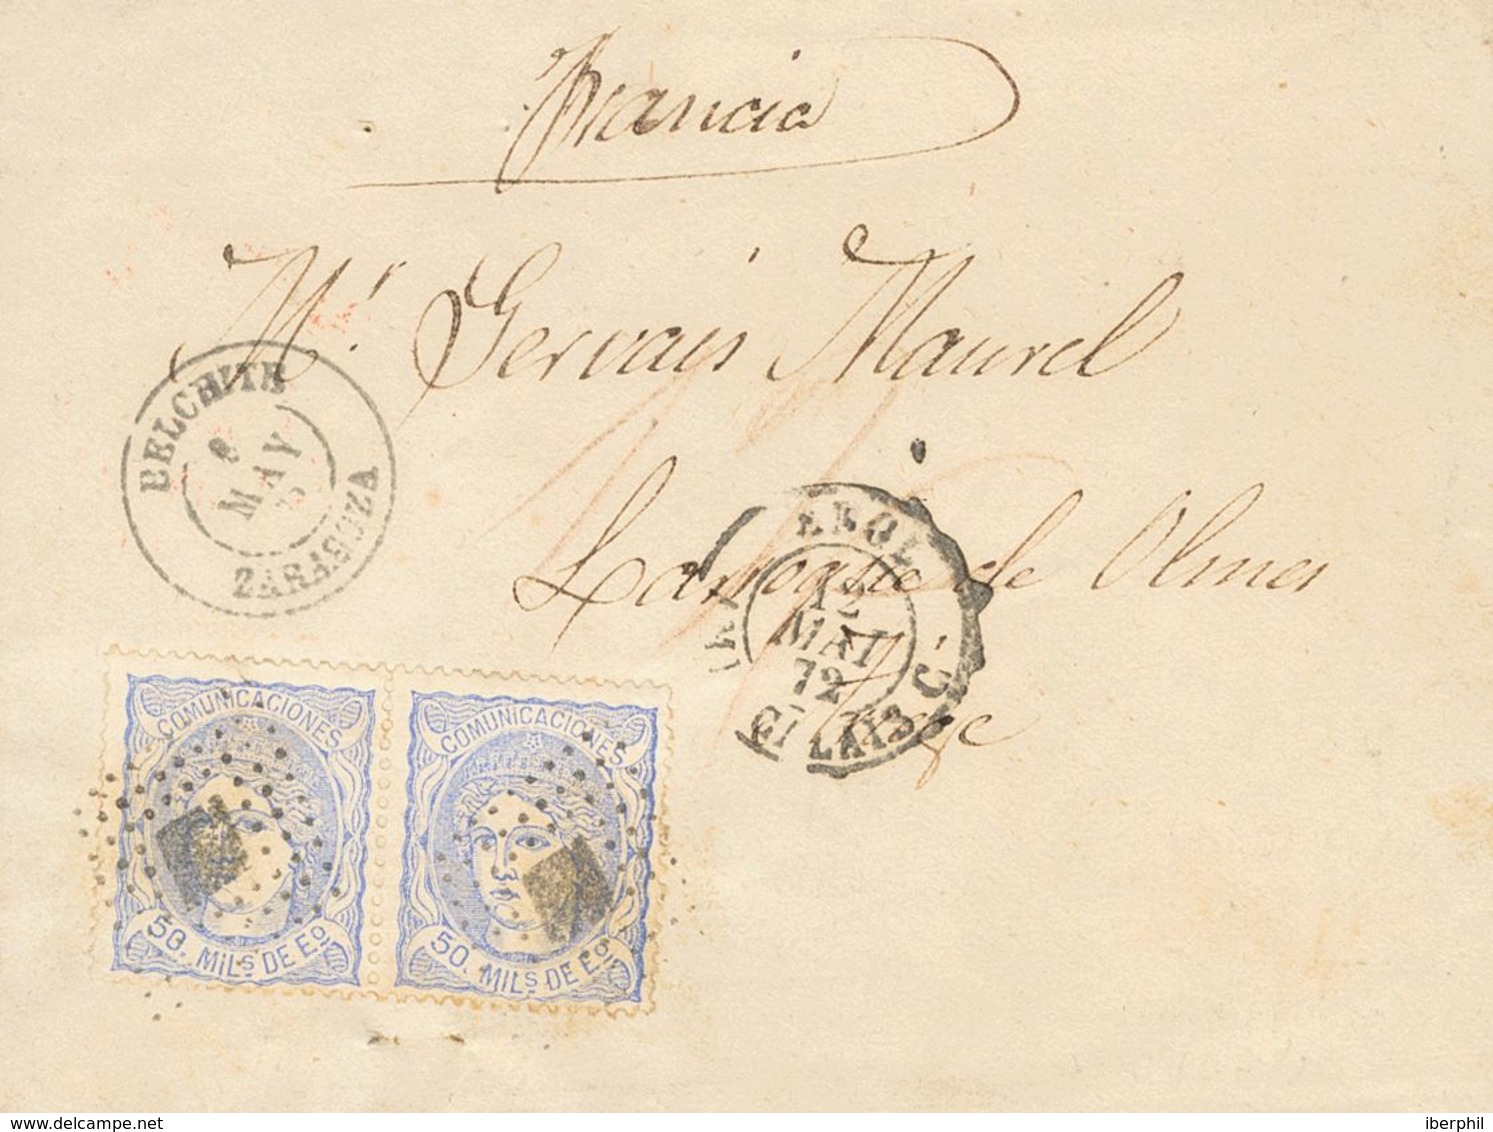 Francia
Mr. Gervais Maurel
BELCHITE
9
MAY
ZARAGOZA
Laroque de Olmes
ERQUE
12
MAI
72
CALAIS C
COMUNICACIONES
50. MILS DE EO.
COMUNICACIONES
50. MILS DE EO.
delcampe.net
iberphil